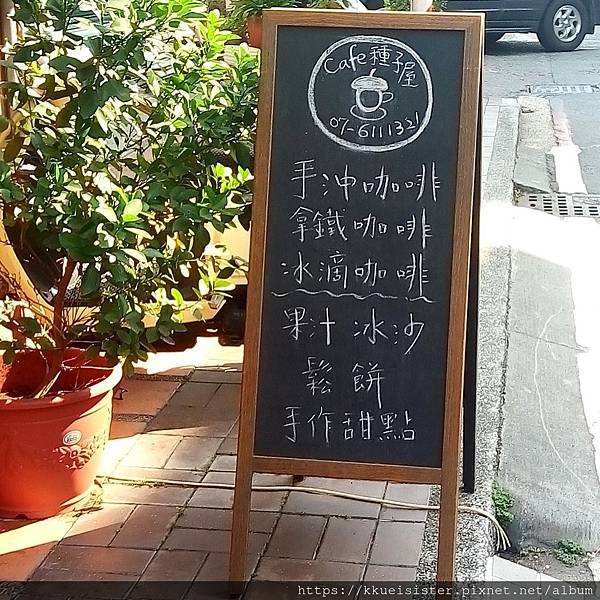 Cafe 種子屋
07-6111321
手沖咖啡
拿鐵咖啡
冰滴咖啡
果汁 冰沙
鬆餅
手作甜點
https://kkueisister.pixnet.net/album